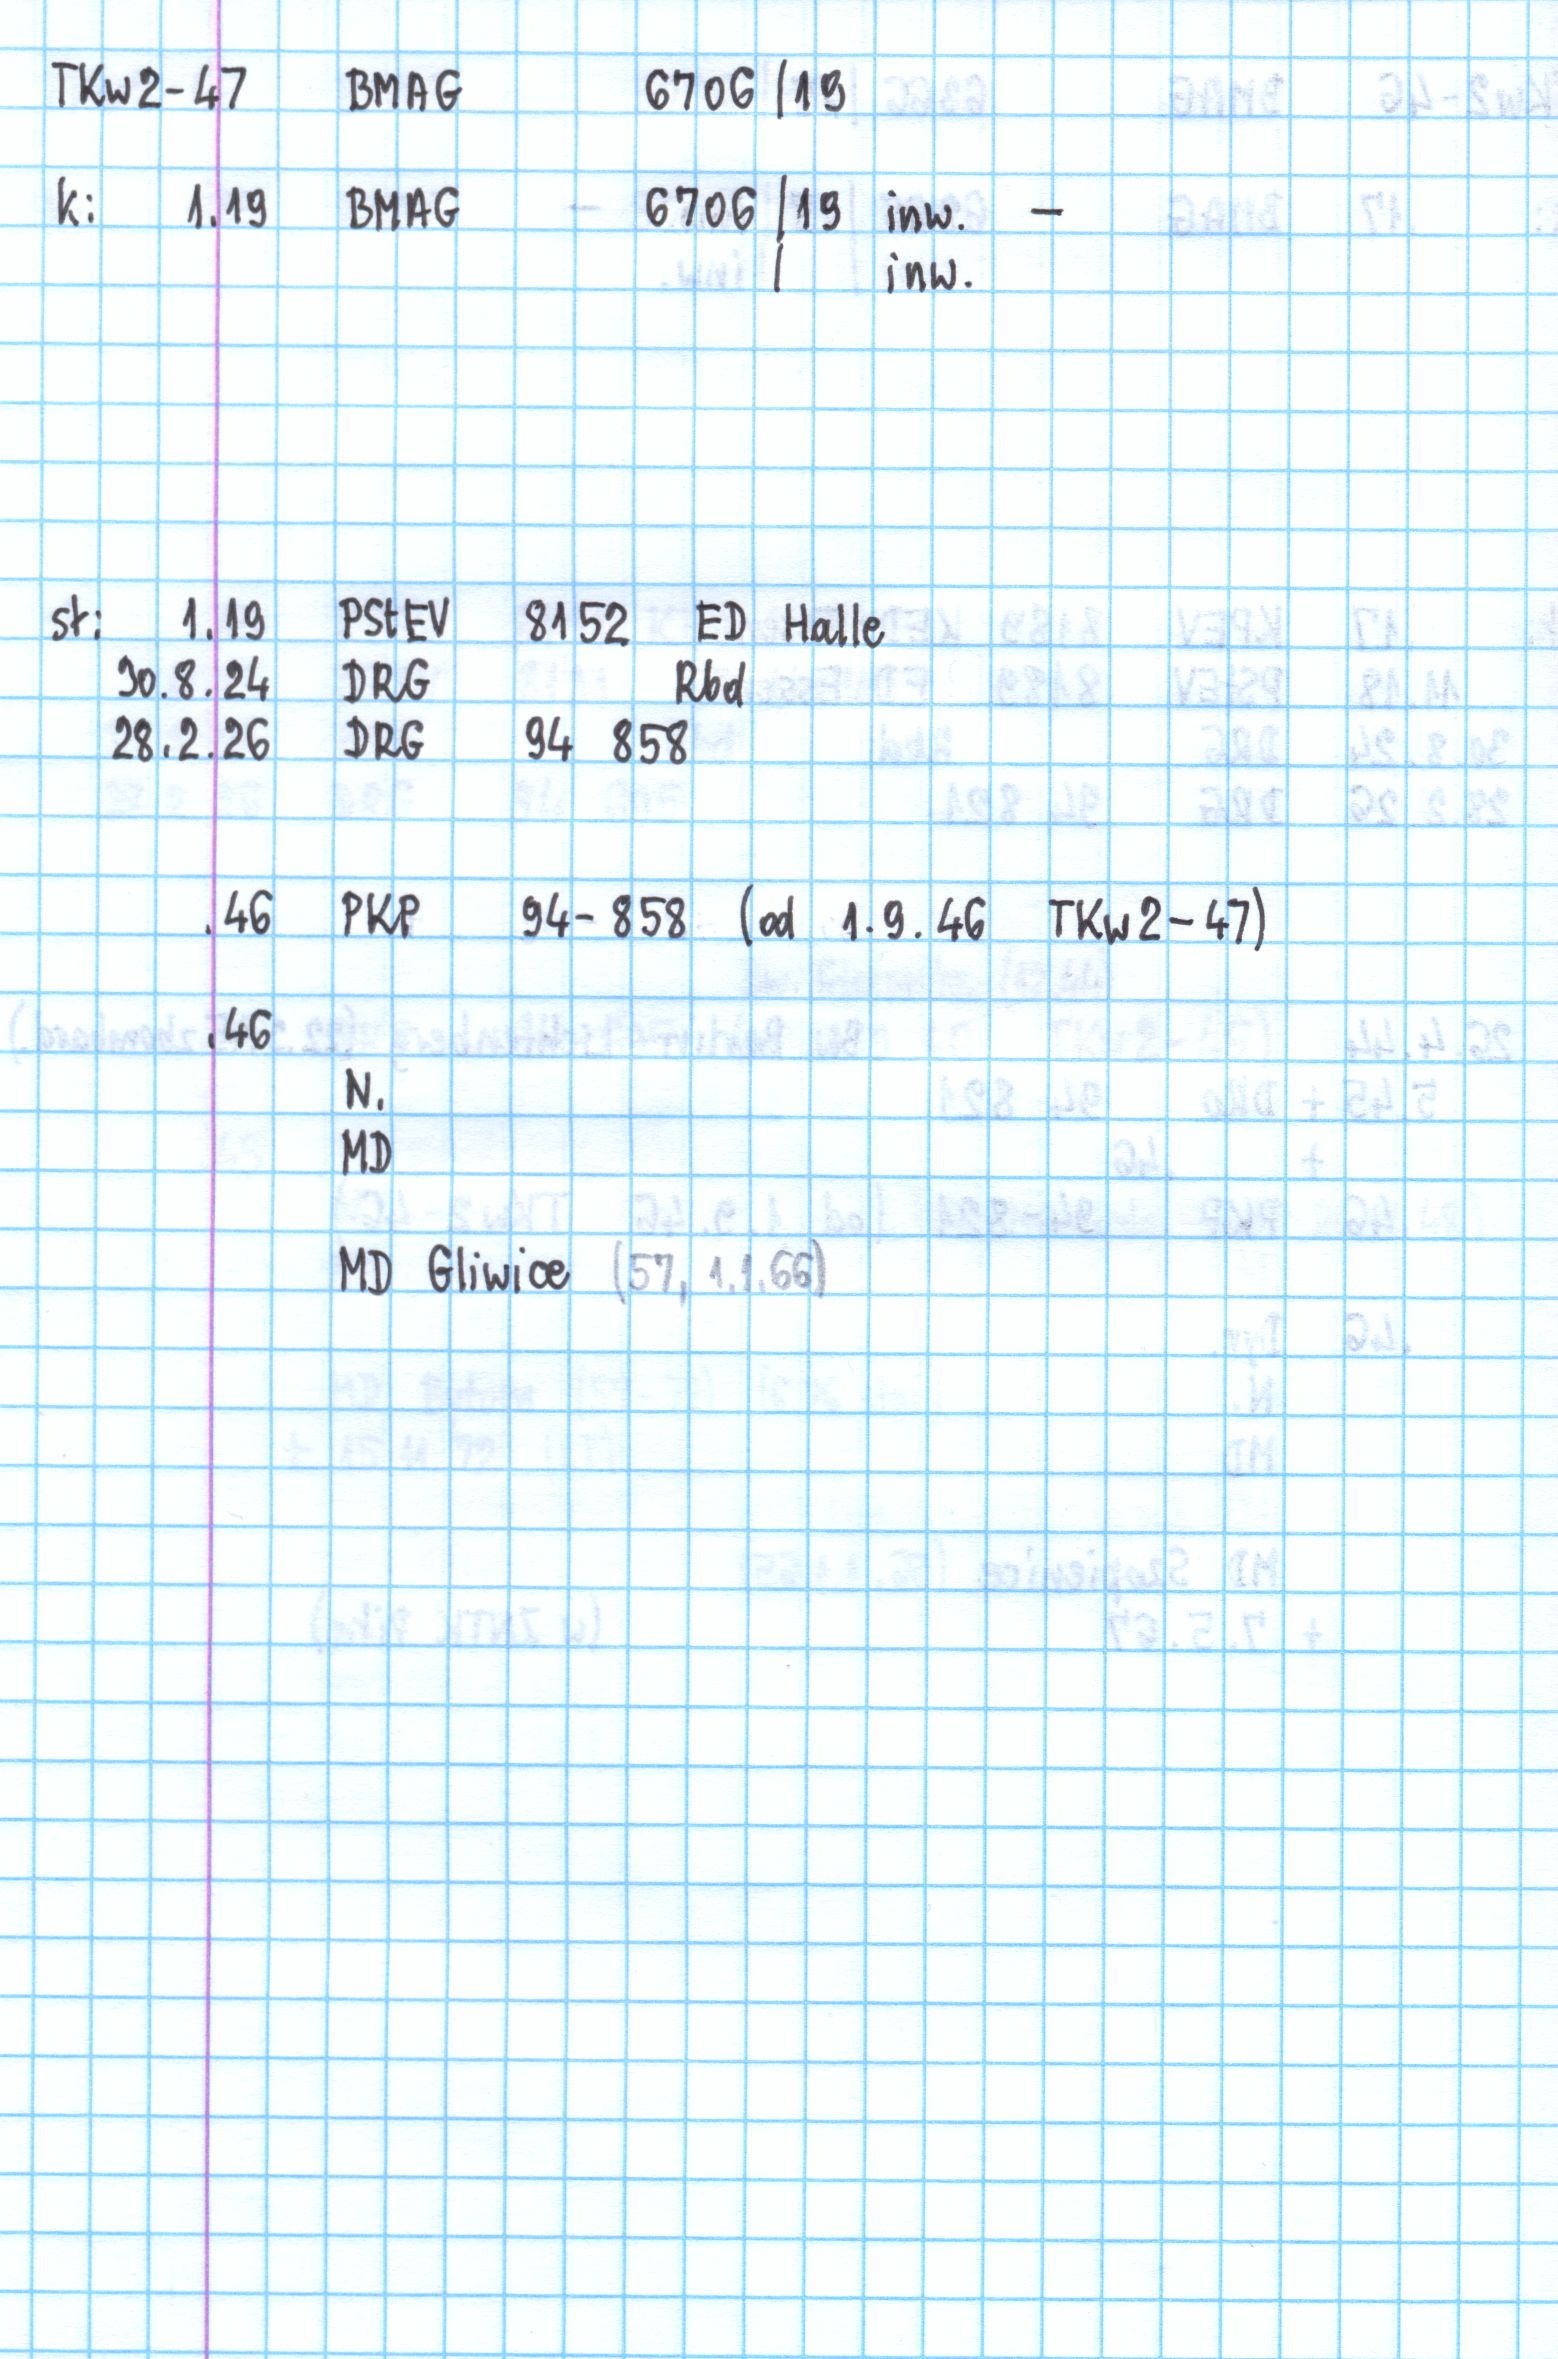 TKw2-47 BMAG 6706/19
k: 1.19 BMAG - 6706/19 inw. -
/ inw.
st: 1.19 PStEV 8152 ED Halle
30.8.24 DRG Rbd
28.2.26 DRG 94 858
.46 PKP 94-858 (od 1.9.46 TKw2-47)
.46
N.
MD
MD Gliwice (57, 1.1.66)